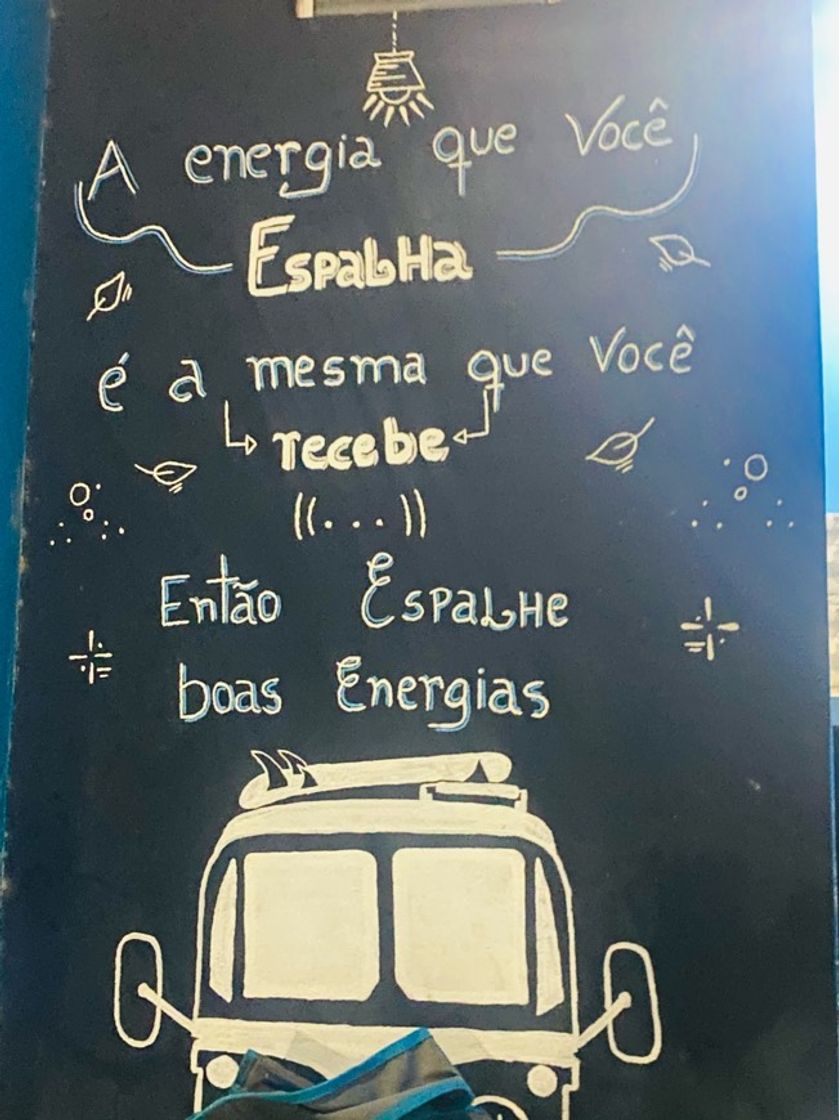 A energia que Você
EspaLHa
é a mesma que Você
recebe
((...))
Então EspaLHe
boas Energias